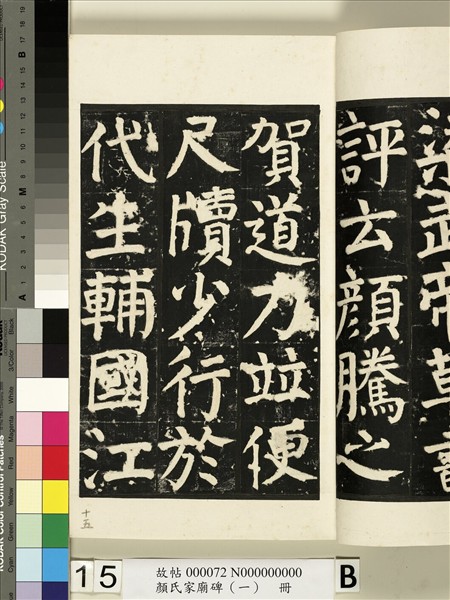 梁武帝草書
評云顏騰之
賀道力竝便
尺牘少行於
代生輔國江
十五
15
故帖 000072 N000000000
顏氏家廟碑（一） 冊
B
KODAK Gray Scale
A 1 2 3 4 5 6 M 8 9 10 11 12 13 14 15 B 17 18 19
KODAK Color Control Patches
Black
3/Color
White
Magenta
Red
Yellow
Green
Cyan